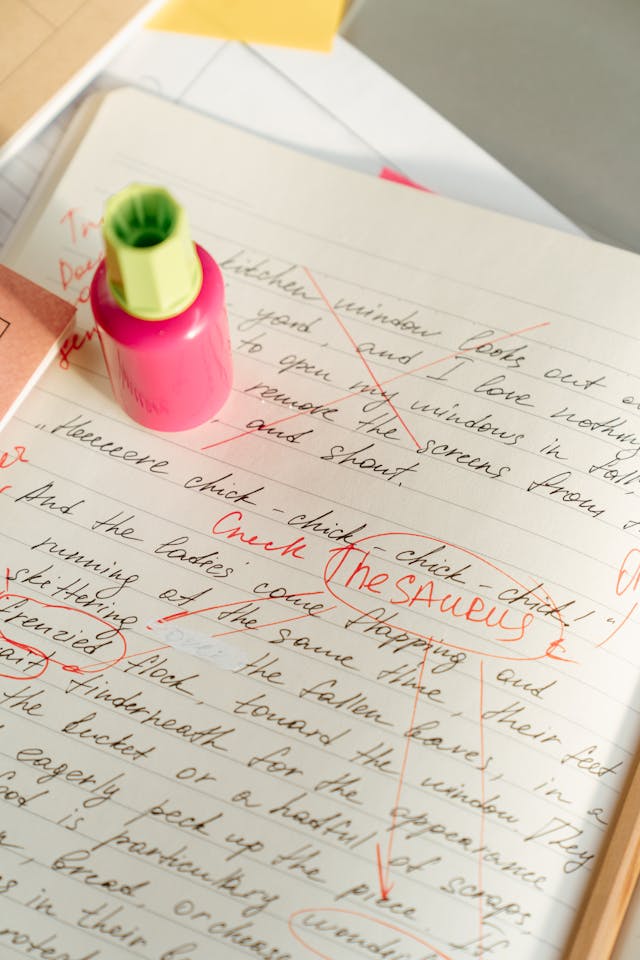 kitchen window looks out
yard, and I love nothing
to open my windows in fall,
remove the screens from
, and shout.
„Heeeeere chick - chick - chick - chick!"
Check TheSAURUS
And the ladies come flapping and
running at the same time, their feet
skittering over the fallen leaves, in a
frenzied flock, toward the window. They
wait underneath for the appearance
the bucket or a hatful of scraps,
eagerly peck up the piece. If
is particulary wonder
, bread, or cheese
in their